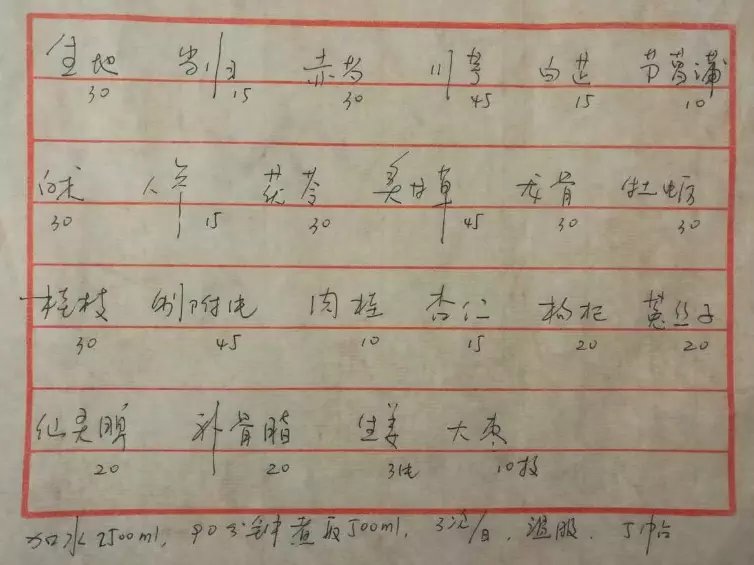 生地 当归 赤芍 川芎 白芷 节菖蒲
30 15 30 45 15 10
白术 人参 茯苓 炙甘草 龙骨 牡蛎
30 15 30 45 30 30
桂枝 制附片 肉桂 杏仁 枸杞 菟丝子
30 45 10 15 20 20
仙灵脾 补骨脂 生姜 大枣
20 20 3片 10枚
加水2500ml, 90分钟煮取500ml, 3次/日, 温服. 5帖